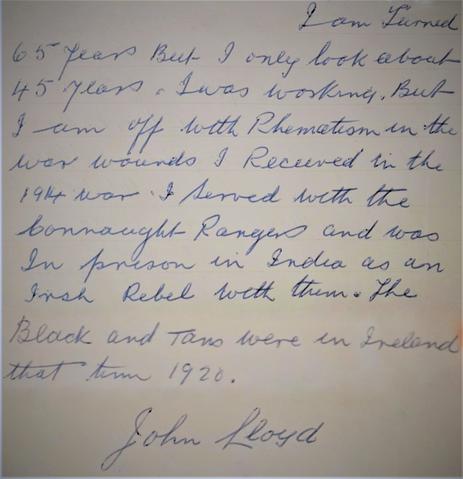 I am Turned
65 years But I only look about
45 years. I was working. But
I am off with Rhematism in the
war wounds I Received in the
1914 war. I served with the
Connaught Rangers and was
In prison in India as an
Irsh Rebel with them. The
Black and Tans were in Ireland
that time 1920.
John Lloyd